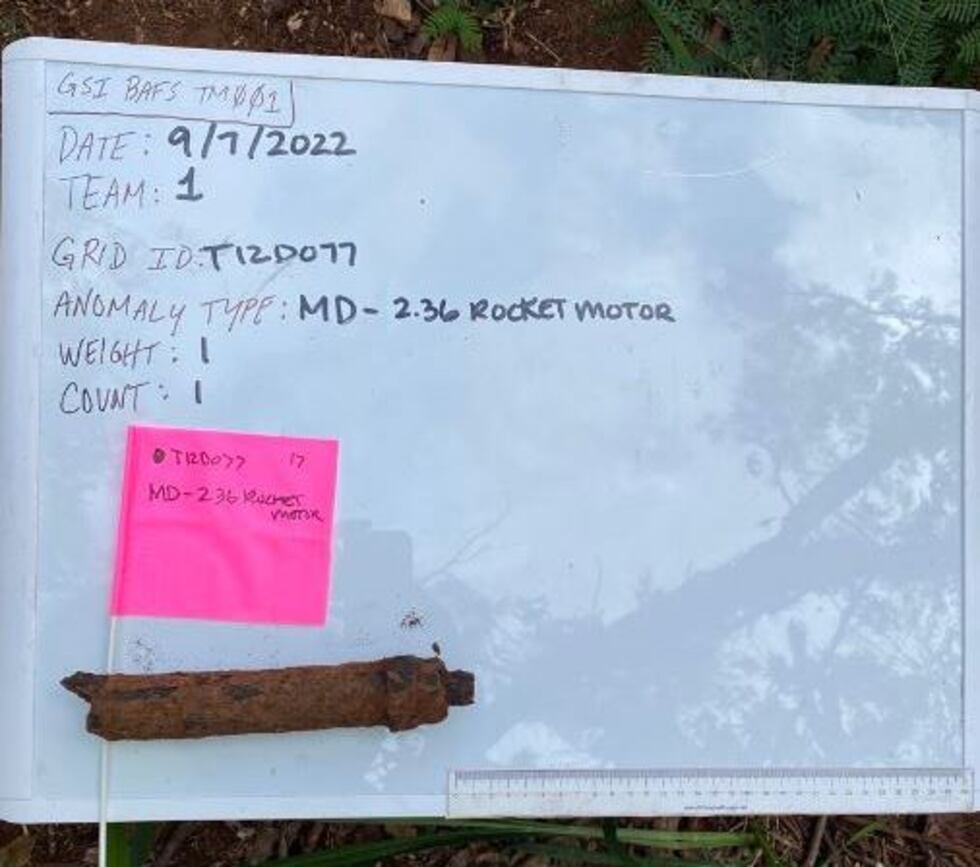 GSI BAFS TM001
DATE: 9/7/2022
TEAM: 1
GRID ID: T12D077
ANOMALY TYPE: MD- 2.36 ROCKET MOTOR
WEIGHT: 1
COUNT: 1
T12D077 17
MD-2.36 ROCKET
MOTOR